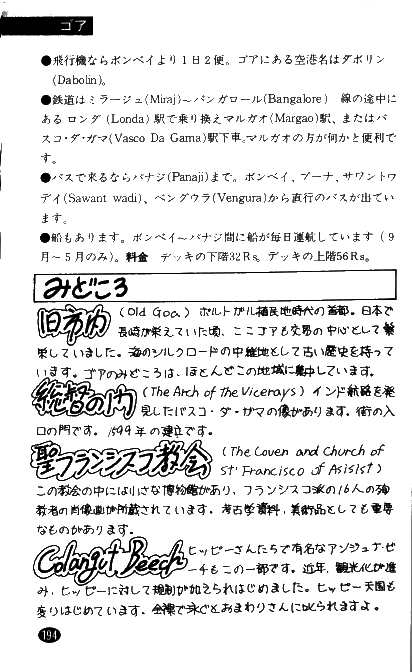 ゴア
●飛行機ならボンベイより1日2便。ゴアにある空港名はダボリン
(Dabolin)。
●鉄道はミラージュ(Miraj)~バンガロール(Bangalore) 線の途中に
ある ロンダ (Londa) 駅で乗り換えマルガオ(Margao)駅、またはバ
スコ・ダ・ガマ(Vasco Da Gama)駅下車。マルガオの方が何かと便利で
す。
●バスで来るならパナジ(Panaji)まで。ボンベイ、プーナ、サワントワ
デイ(Sawant wadi)、ベングウラ(Vengura)から直行のバスが出てい
ます。
●船もあります。ボンベイ~パナジ間に船が毎日運航しています (9
月~5月のみ)。料金 デッキの下階32Rs。デッキの上階56Rs。
みどころ
旧市内 (Old Goa) ポルトガル植民地時代の首都。日本で
長崎が栄えていた頃、ここゴアも交易の中心として繁
栄していました。海のシルクロードの中継地として古い歴史を持って
います。ゴアのみどころは、ほとんどこの地域に集中しています。
総督の門 (The Arch of the Vicerays) インド航路を発
見したバスコ・ダ・ガマの像があります。街の入
口の門です。1599年の建立です。
聖フランシスコ教会 (The Coven and Church of
St Francisco of Asisist)
この教会の中には小さな博物館があり、フランシスコ派の16人の殉
教者の肖像画が所蔵されています。考古学資料、美術品としても重要
なものがあります。
Colangut Beech ヒッピーさんたちで有名なアンジュナ・ビ
ーチもこの一部です。近年、観光化が進
み、ヒッピーに対して規制が加えられはじめました。ヒッピー天国も
変りはじめています。全裸で泳ぐとおまわりさんに叱られますよ。
194